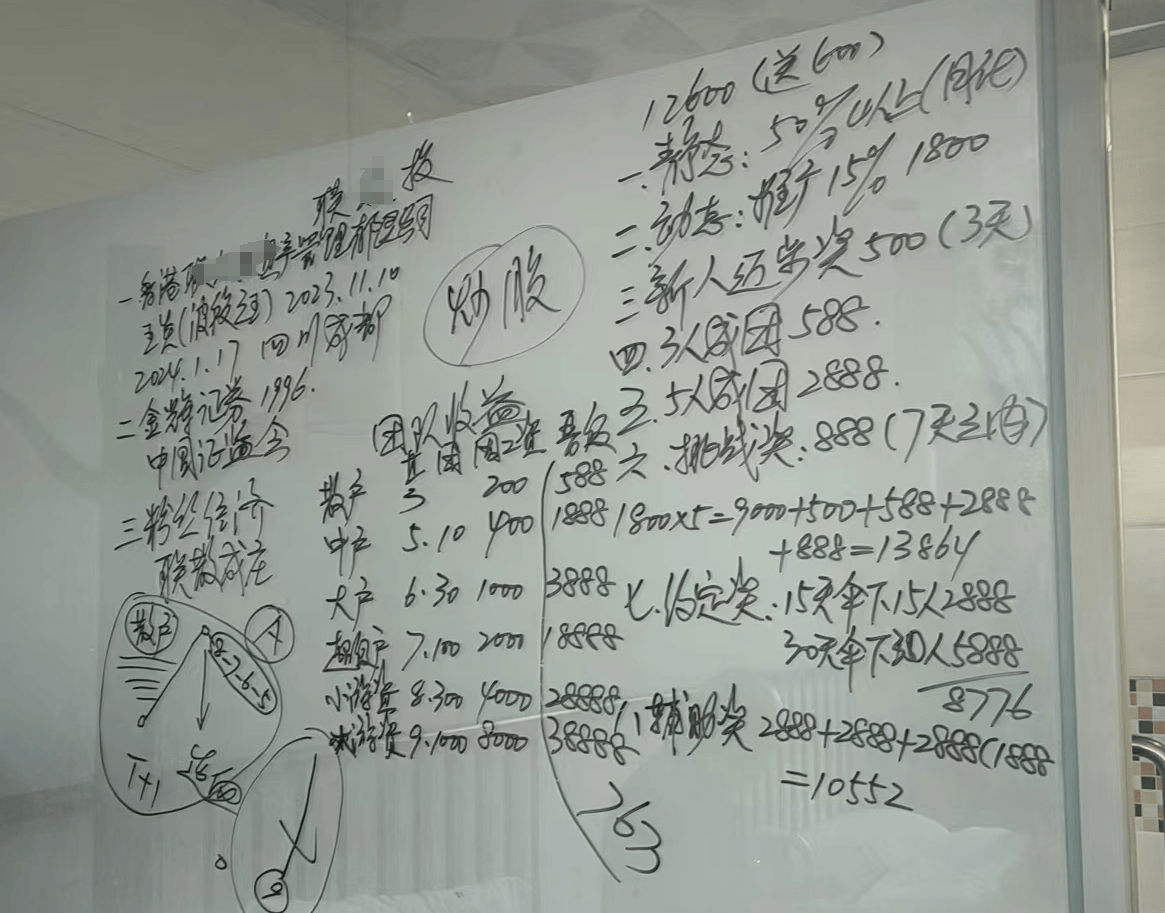 联 投
一.香港联 管理有限公司
王总(波段王) 2023.11.10
2024.1.17 四川成都
二 金辉证券 1996.
中国证监会
三 粉丝经济
联散成庄
散户
8-7-6-5
T+1
炒股
团队收益
直 团 周工资 晋级
散户 3 200 588
中户 5.10 400 1888
大户 6.30 1000 3888
超级户 7.100 2000 18888
小游资 8.300 4000 28888
游资 9.1000 8000 38888
763
12600(送600)
一.静态: 50%以上(月化)
二.动态: 推广15% 1800
三 新人迈步奖500(3天)
四.3人成团588.
五.5人成团2888.
六.挑战奖:888(7天之内)
1800×5=9000+500+588+2888
+888=13864
七.约定奖:15天伞下15人2888
30天伞下30人5888
8776
八 辅助奖 2888+2888+2888(1888
=10552